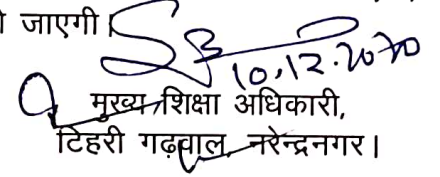 जाएगी।
10.12.2020
मुख्य शिक्षा अधिकारी,
टिहरी गढ़वाल, नरेन्द्रनगर।